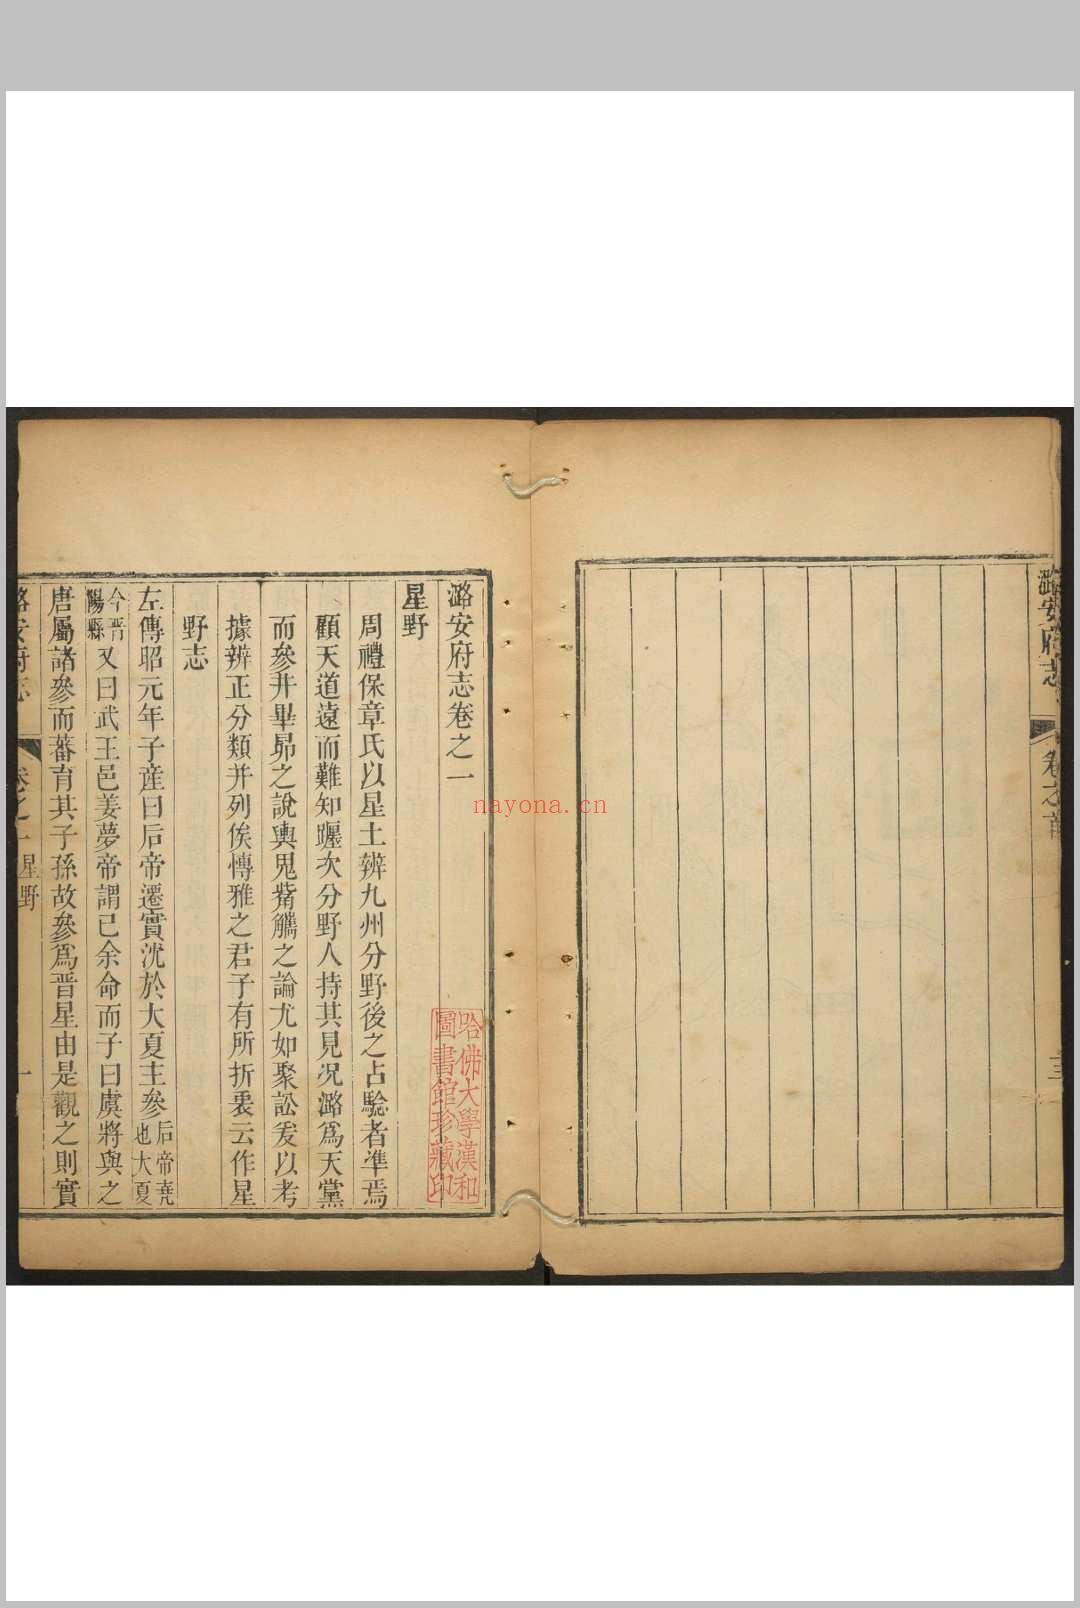 潞安府志
卷之首
潞安府志卷之一
星野
周禮保章氏以星土辨九州分野後之占驗者準焉
顧天道遠而難知躔次分野人持其見况潞爲天黨
而參井畢昴之說輿鬼觜觿之論尤如聚訟爰以考
據辨正分類并列俟博雅之君子有所折衷云作星
野志
左傳昭元年子産曰后帝遷實沈於大夏主參后帝堯也大夏
今晋陽縣又曰武王邑姜夢帝謂已余命而子曰虞將與之
唐屬諸參而蕃育其子孫故參爲晋星由是觀之則實
潞安府志
卷之一
星野
一
哈佛大學漢和
圖書館珍藏印
nayona.cn